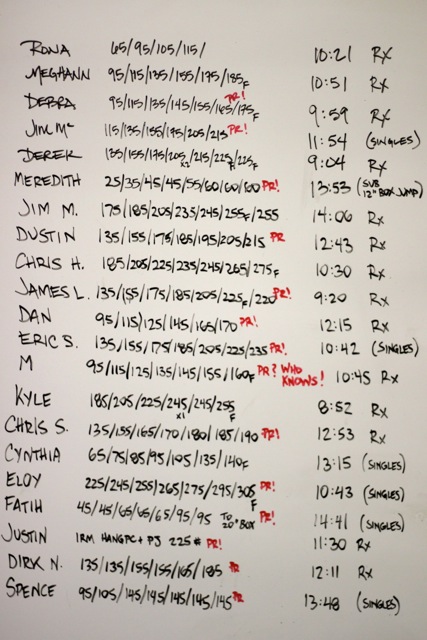 RONA 65/95/105/115/ 10:21 Rx
MEGHANN 95/115/135/155/175/185F 10:51 Rx
DEBRA 95/115/135/145/155/165/175F PR! 9:59 Rx
JIM Mc 115/135/155/175/205/215 PR! 11:54 (SINGLES)
DEREK 135/155/175/205 x2/215/225F/225F 9:04 Rx
MEREDITH 25/35/45/45/55/60/60/60 PR! 13:53 (SUB 12" BOX JUMP)
JIM M. 175/185/205/235/245/255F/255 14:06 Rx
DUSTIN 135/155/175/185/195/205/215 PR 12:43 Rx
CHRIS H. 185/205/225/235/245/265/275F 10:30 Rx
JAMES L. 135/155/175/185/205/225F/220 PR! 9:20 Rx
DAN 95/115/125/145/165/170 PR! 12:15 Rx
ERIC S. 135/155/175/185/205/225/235 PR! 10:42 (SINGLES)
M 95/115/125/135/145/155/160F PR? WHO KNOWS! 10:45 Rx
KYLE 185/205/225/245 x1/245/255F 8:52 Rx
CHRIS S. 135/155/165/170/180/185/190 PR! 12:53 Rx
CYNTHIA 65/75/85/95/105/135/140F 13:15 (SINGLES)
ELOY 225/245/255/265/275/295/305F PR! 10:43 (SINGLES)
FATIH 45/45/65/65/65/95/95 TO 20" BOX PR! 14:41 (SINGLES)
JUSTIN 1RM HANGPC + PJ 225# PR! 11:30 Rx
DIRK N. 135/135/155/155/165/185 PR 12:11 Rx
SPENCE 95/105/145/145/145/145/145 PR 13:48 (SINGLES)